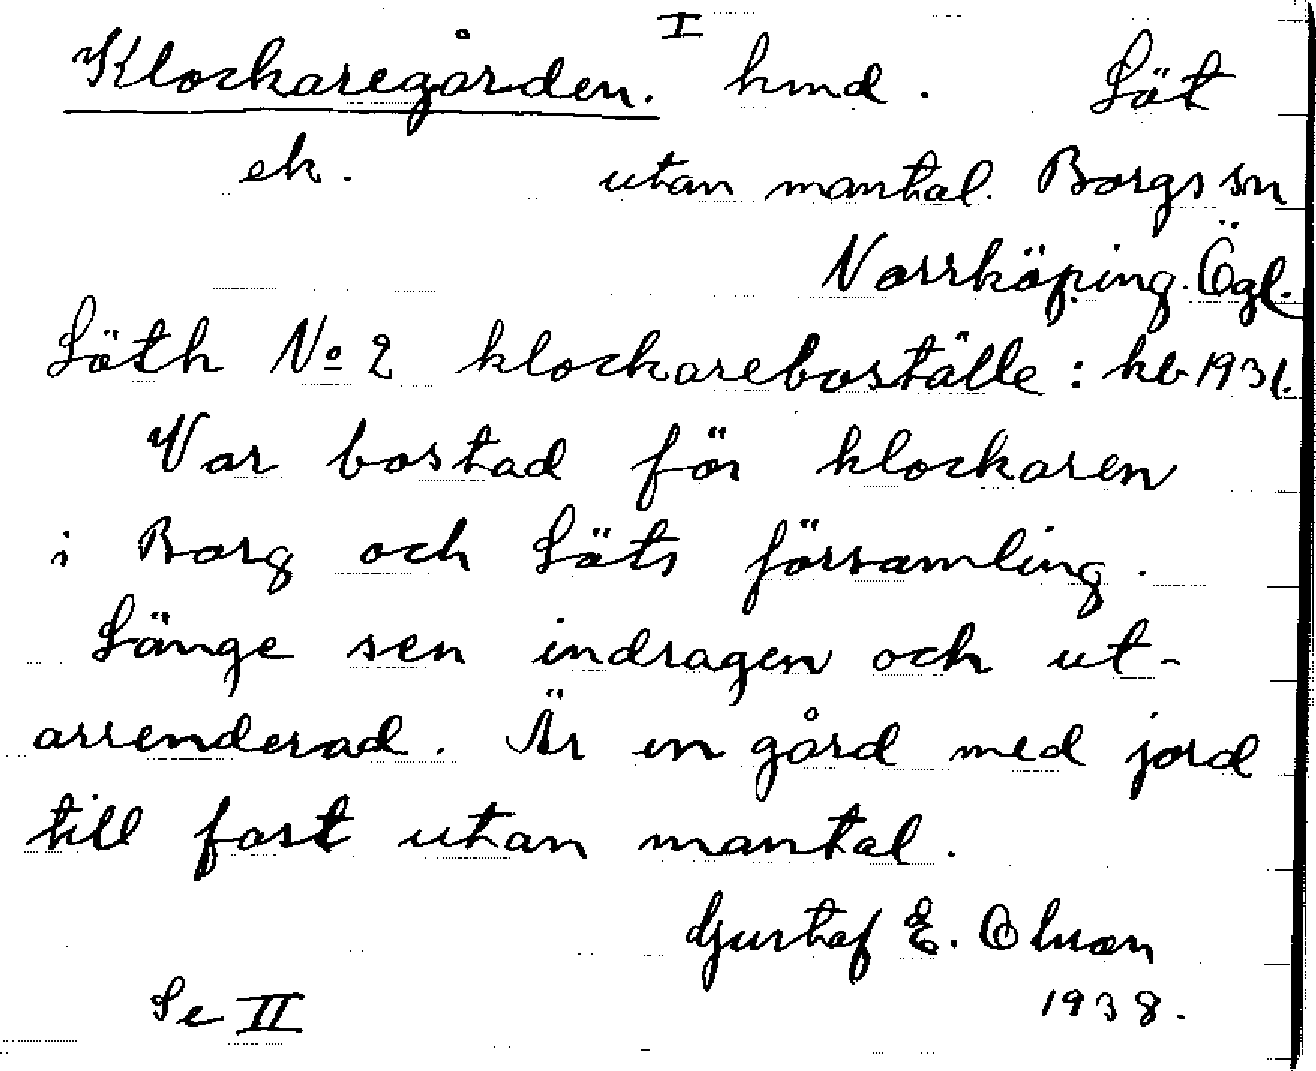 I
Klockaregården. hmd. Löt
ek. utan mantal. Borgs sn
Norrköping. Ögl.
Löth No 2 klockareboställe: kb 1931.
Var bostad för klockaren
i Borg och Löts församling.
Länge sen indragen och ut-
arrenderad. Är en gård med jord
till fast utan mantal.
Gustaf E. Olsson
Se II 1938.